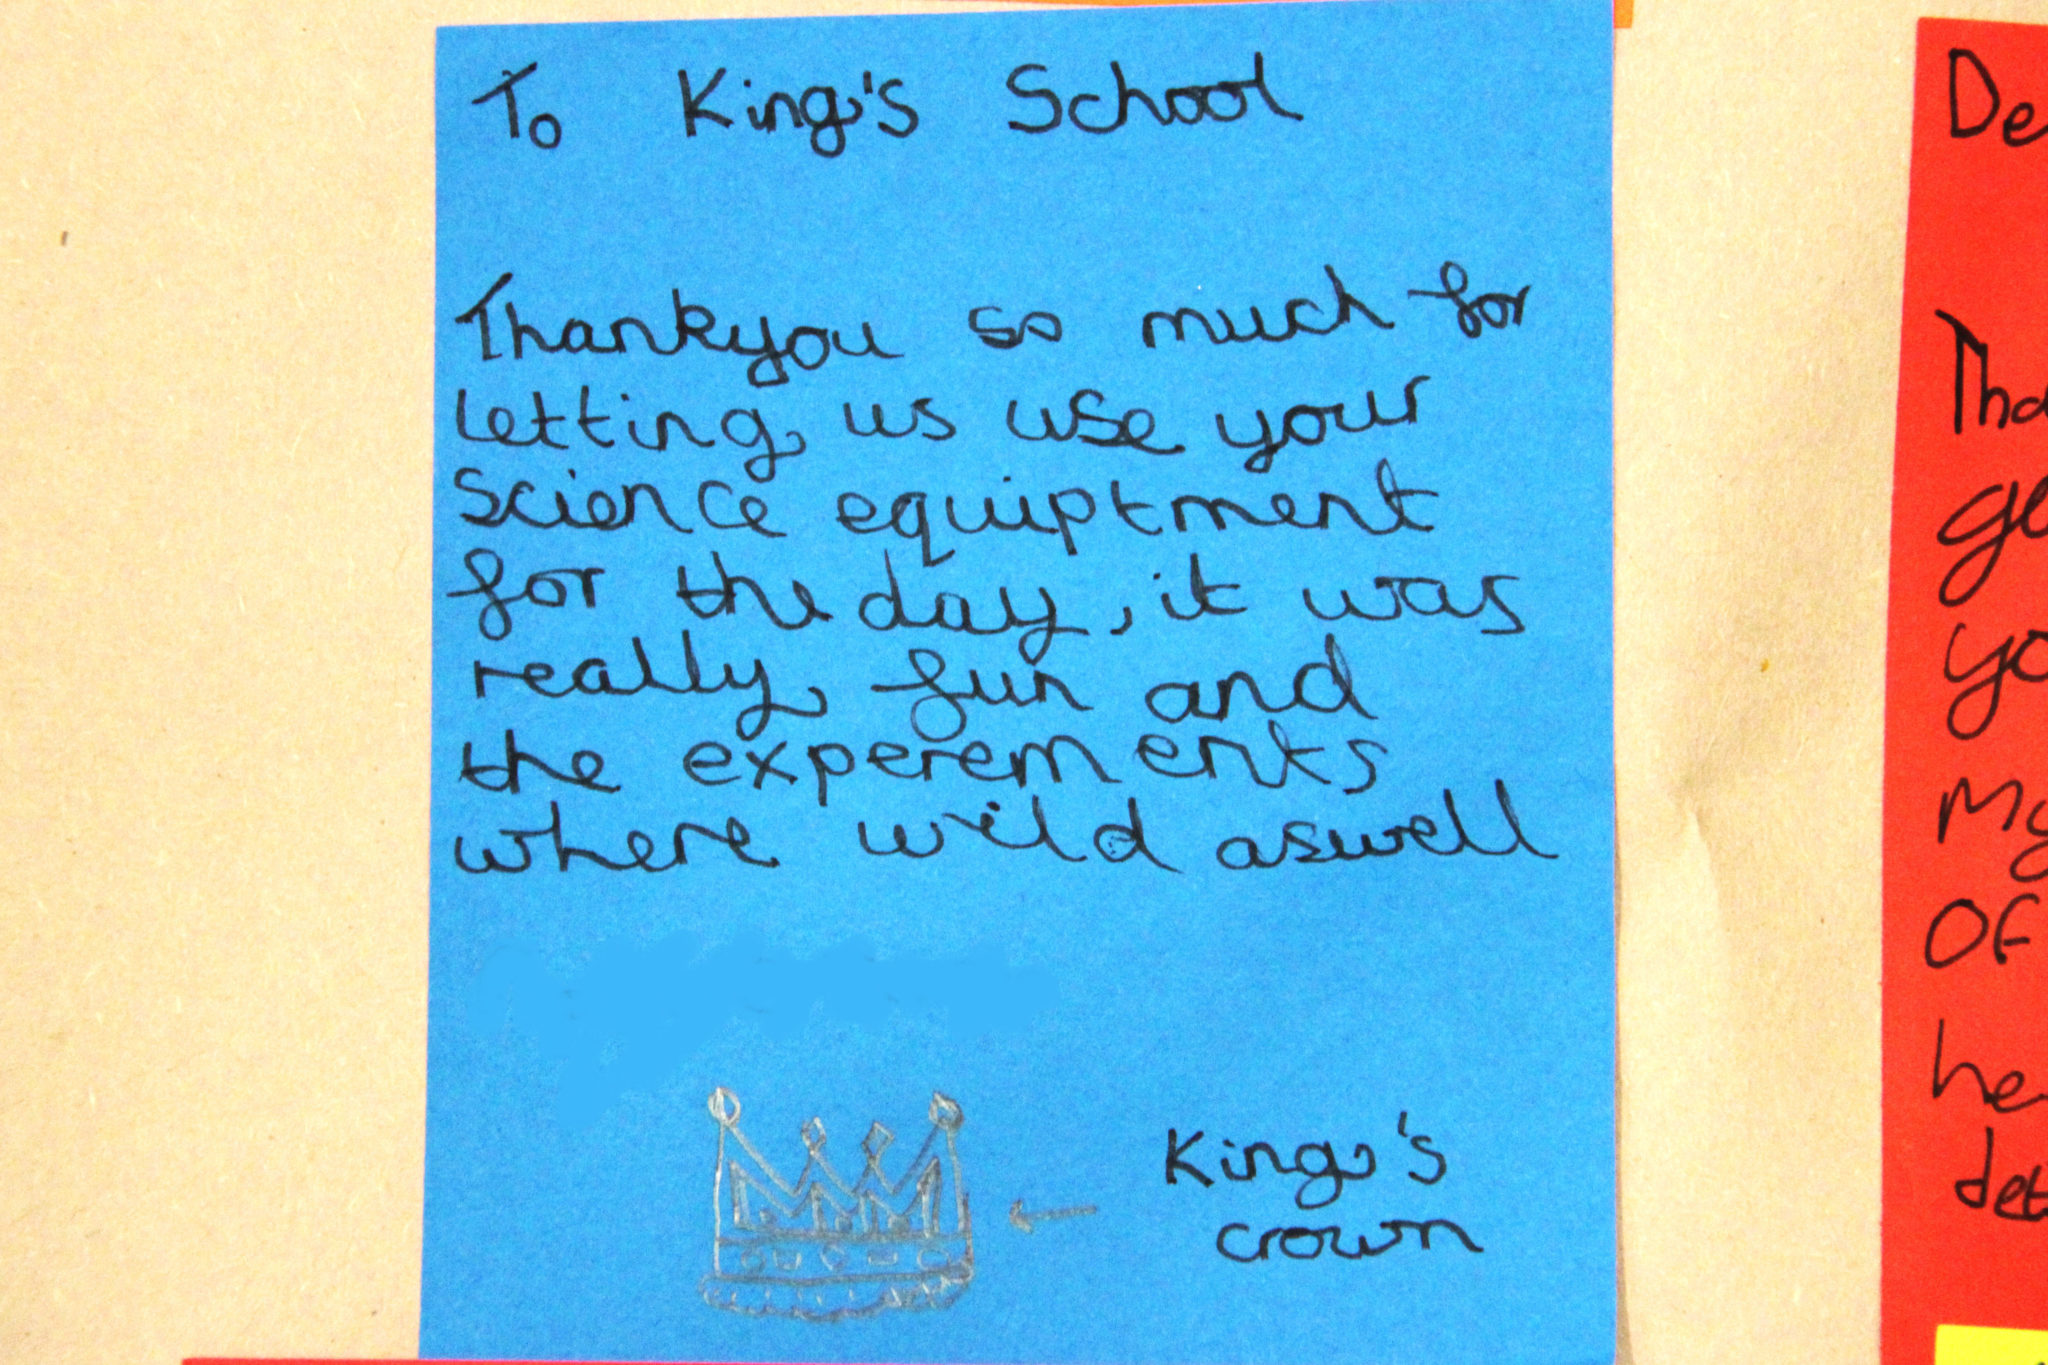 To King's School
Thankyou so much for
letting us use your
science equiptment
for the day, it was
really fun and
the experements
where wild aswell
King's
crown
De
Tha
ge
yo
My
OF
he
det